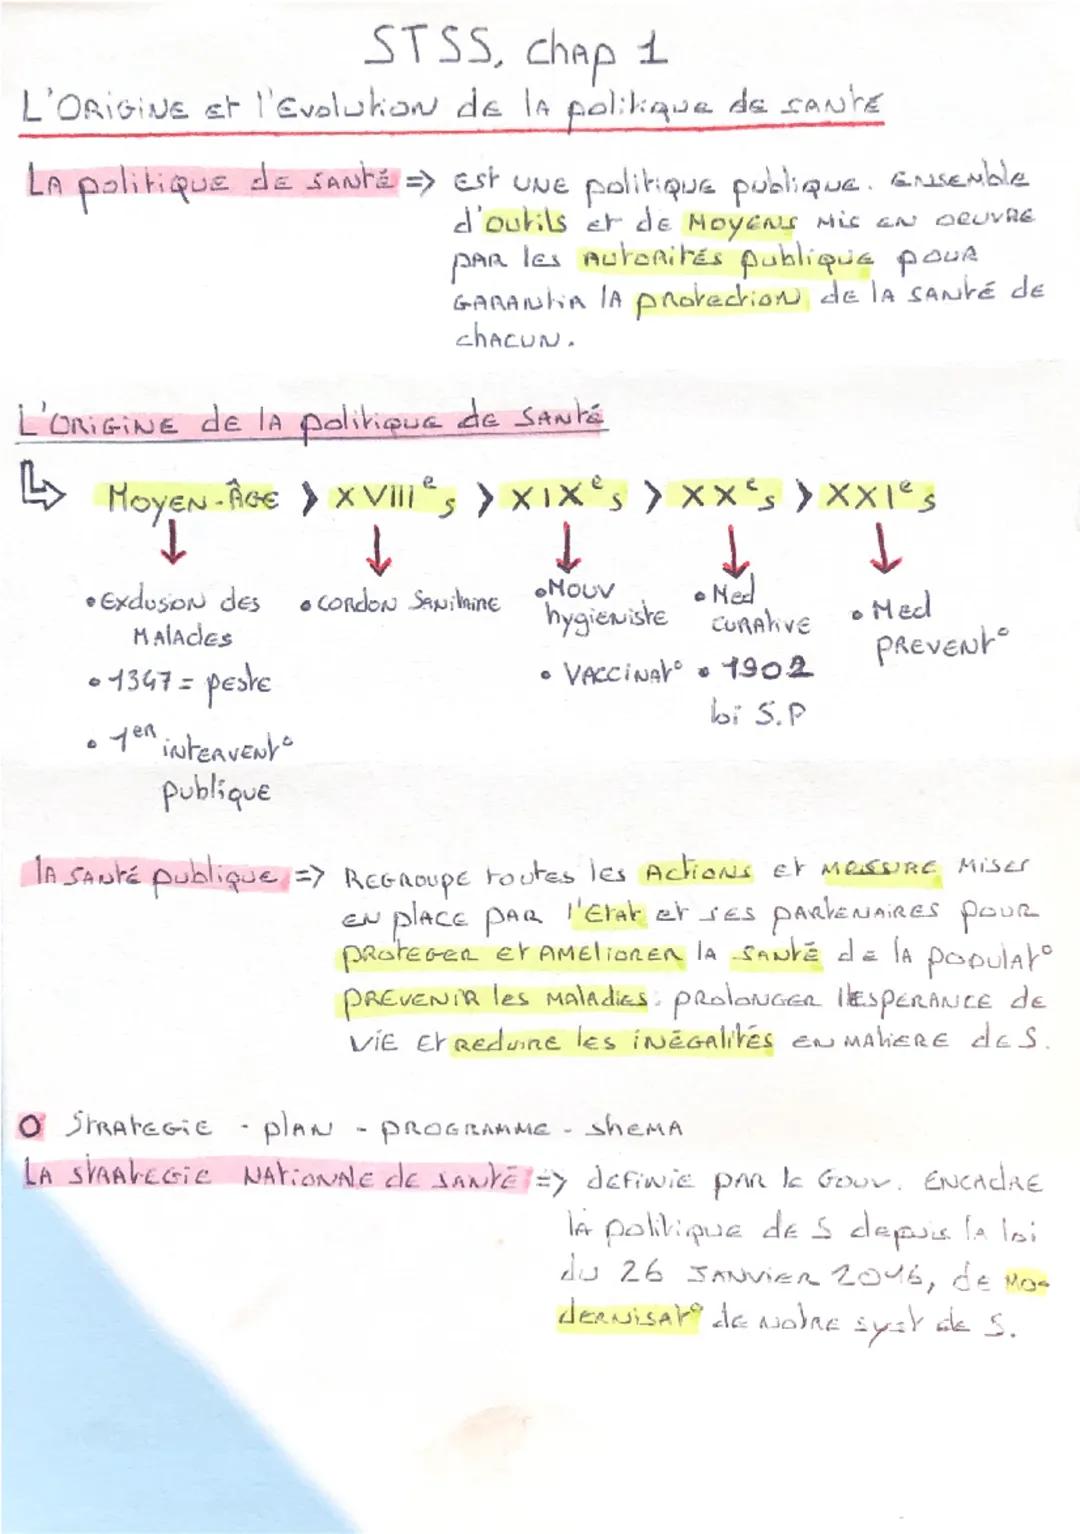 STSS, chap 1
L'ORIGINE et l'Evolution de lA politique de sANté
LA politique de sANté => est UNE politique publique. Ensemble
d'outils et de MOYENS Mis EN OEUVRE
pAR les AutoRités publique pouR
GARANtiR lA pRotection de lA sANté de
chAcUN.
L'ORIGINE de lA politique de SANté
MOYEN-ÂGE > XVIIIe s > XIXe s > XXe s > XXIe s
• Exclusion des
MAlAdes
• 1347 = peste
• 1er iNtERVENt°
publique
• CORdoN SANitAiRE
• Mouv
hygiéNiste
• VACCiNAt°
• Med
CURAtiVE
• 1902
loi S.P
• Med
PREVENt°
lA SANté publique => REGROUPE toutes les ActioNs Et MESSURE Mises
EN plACE pAR l'EtAt et ses pARtENAiREs pouR
pROtEGER Et AMELioRER lA SANté de lA populAt°
pREVENiR les MAlAdiEs. pRoloNGER l'ESpERANCE de
ViE Et Reduire les iNÉGAlités EN MAtiERE de S.
O StRAtEGiE - plAN - pROGRAMME - shEMA
LA stRAtEGiE NAtioNAlE de sANté => dEfiNiE pAR le Gouv. ENCAdRE
lA politique de S depuis lA loi
du 26 JANViER 2016, de Mo-
dERNisAt° de NotRE syst de S.